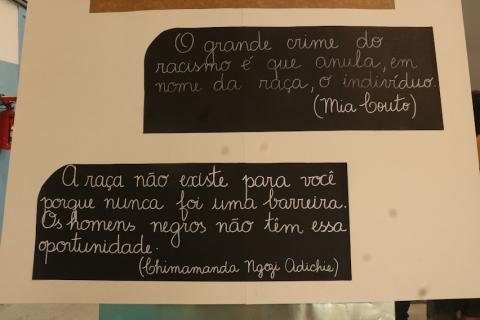 O grande crime do
racismo é que anula, em
nome da raça, o indivíduo.
(Mia Couto)
A raça não existe para você
porque nunca foi uma barreira.
Os homens negros não têm essa
oportunidade.
(Chimamanda Ngozi Adichie)